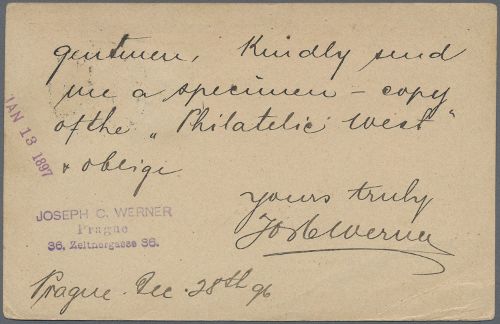 gentmen, Kindly send
me a specimen - copy
of the „Philatelic West"
& oblige
yours truly
Jos C Werner
JAN 13 1897
JOSEPH C. WERNER
Prague
36, Zeltnergasse 36.
Prague. Dec. 28th 96